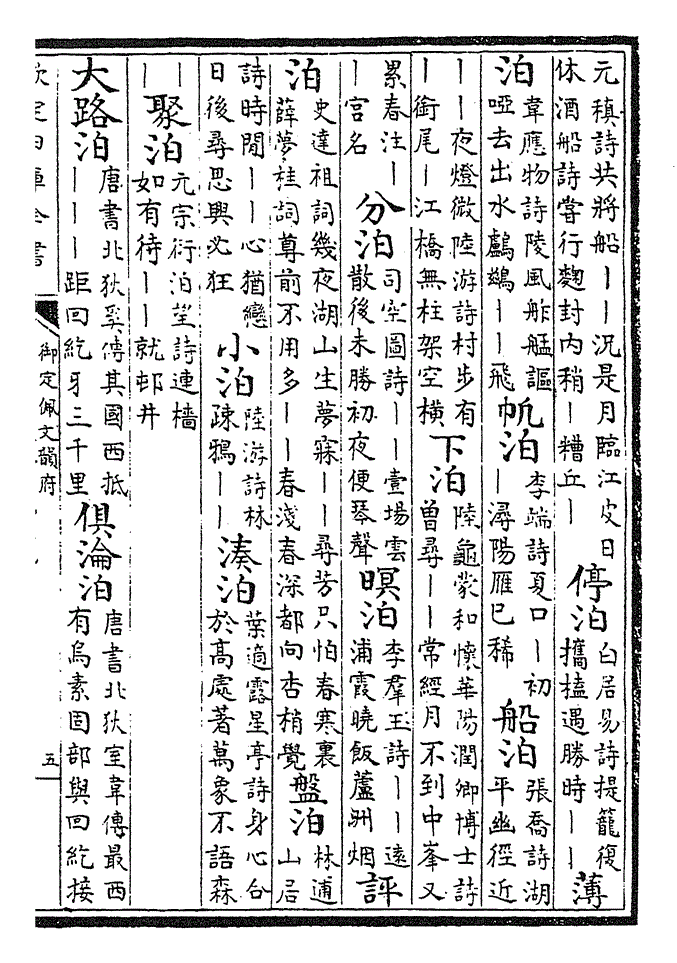 元稹詩共將船｜｜況是月臨江皮日
休酒船詩嘗行麴封内稍｜糟丘｜
停泊
白居易詩提籠復
攜榼遇勝時｜｜
薄
泊
韋應物詩陵風舴艋謳
啞去出水鸕鷀｜｜飛
帆泊
李端詩夏口｜初
｜潯陽雁已稀
船泊
張喬詩湖
平幽徑近
｜｜夜燈微陸游詩村步有
｜銜尾｜江橋無柱架空橫
下泊
陸龜蒙和懷華陽潤卿博士詩
曾尋｜｜常經月不到中峯又
累春注｜
｜宮名
分泊
司空圖詩｜｜壹場雲
散後未勝初夜便琴聲
暝泊
李羣玉詩｜｜遠
浦霞曉飯蘆洲烟
評
泊
史達祖詞幾夜湖山生夢寐｜｜尋芳只怕春寒裏
薛夢桂詞尊前不用多｜｜春淺春深都向杏梢覺
盤泊
林逋
山居
詩時閒｜｜心猶戀
日後尋思興必狂
小泊
陸游詩林
疎鴉｜｜
湊泊
葉適露星亭詩身心合
於高處著萬象不語森
｜｜
聚泊
元宗衍泊望詩連檣
如有待｜｜就邨井
大路泊
唐書北狄奚傳其國西抵
｜｜｜距回紇牙三千里
俱淪泊
唐書北狄室韋傳最西
有烏素固部與回紇接
欽定四庫全書
御定佩文韻府
五